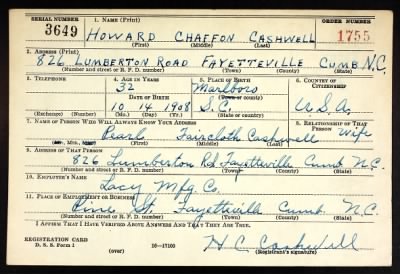 SERIAL NUMBER 1. NAME (Print) ORDER NUMBER
3649 HOWARD CHAFFON CASHWELL 1755
(First) (Middle) (Last)
2. ADDRESS (Print)
826 LUMBERTON ROAD FAYETTEVILLE CUMB N.C.
(Number and street or R. F. D. number) (Town) (County) (State)
3. TELEPHONE 4. AGE IN YEARS 5. PLACE OF BIRTH 6. COUNTRY OF CITIZENSHIP
32 Marlboro
DATE OF BIRTH (Town or county)
10 14 1908 S.C. U.S.A.
(Exchange) (Number) (Mo.) (Day) (Yr.) (State or country)
7. NAME OF PERSON WHO WILL ALWAYS KNOW YOUR ADDRESS 8. RELATIONSHIP OF THAT PERSON
Pearl Faircloth Cashwell Wife
(Mr., Mrs., Miss) (First) (Middle) (Last)
9. ADDRESS OF THAT PERSON
826 Lumberton Rd Fayetteville Cumb. N.C.
(Number and street or R. F. D. number) (Town) (County) (State)
10. EMPLOYER'S NAME
Lacy Mfg. Co.
11. PLACE OF EMPLOYMENT OR BUSINESS
Pine St. Fayetteville Cumb. N.C.
(Number and street or R. F. D. number) (Town) (County) (State)
I AFFIRM THAT I HAVE VERIFIED ABOVE ANSWERS AND THAT THEY ARE TRUE.
REGISTRATION CARD
D. S. S. Form 1 (over) 16—17105 H C Cashwell
(Registrant's signature)